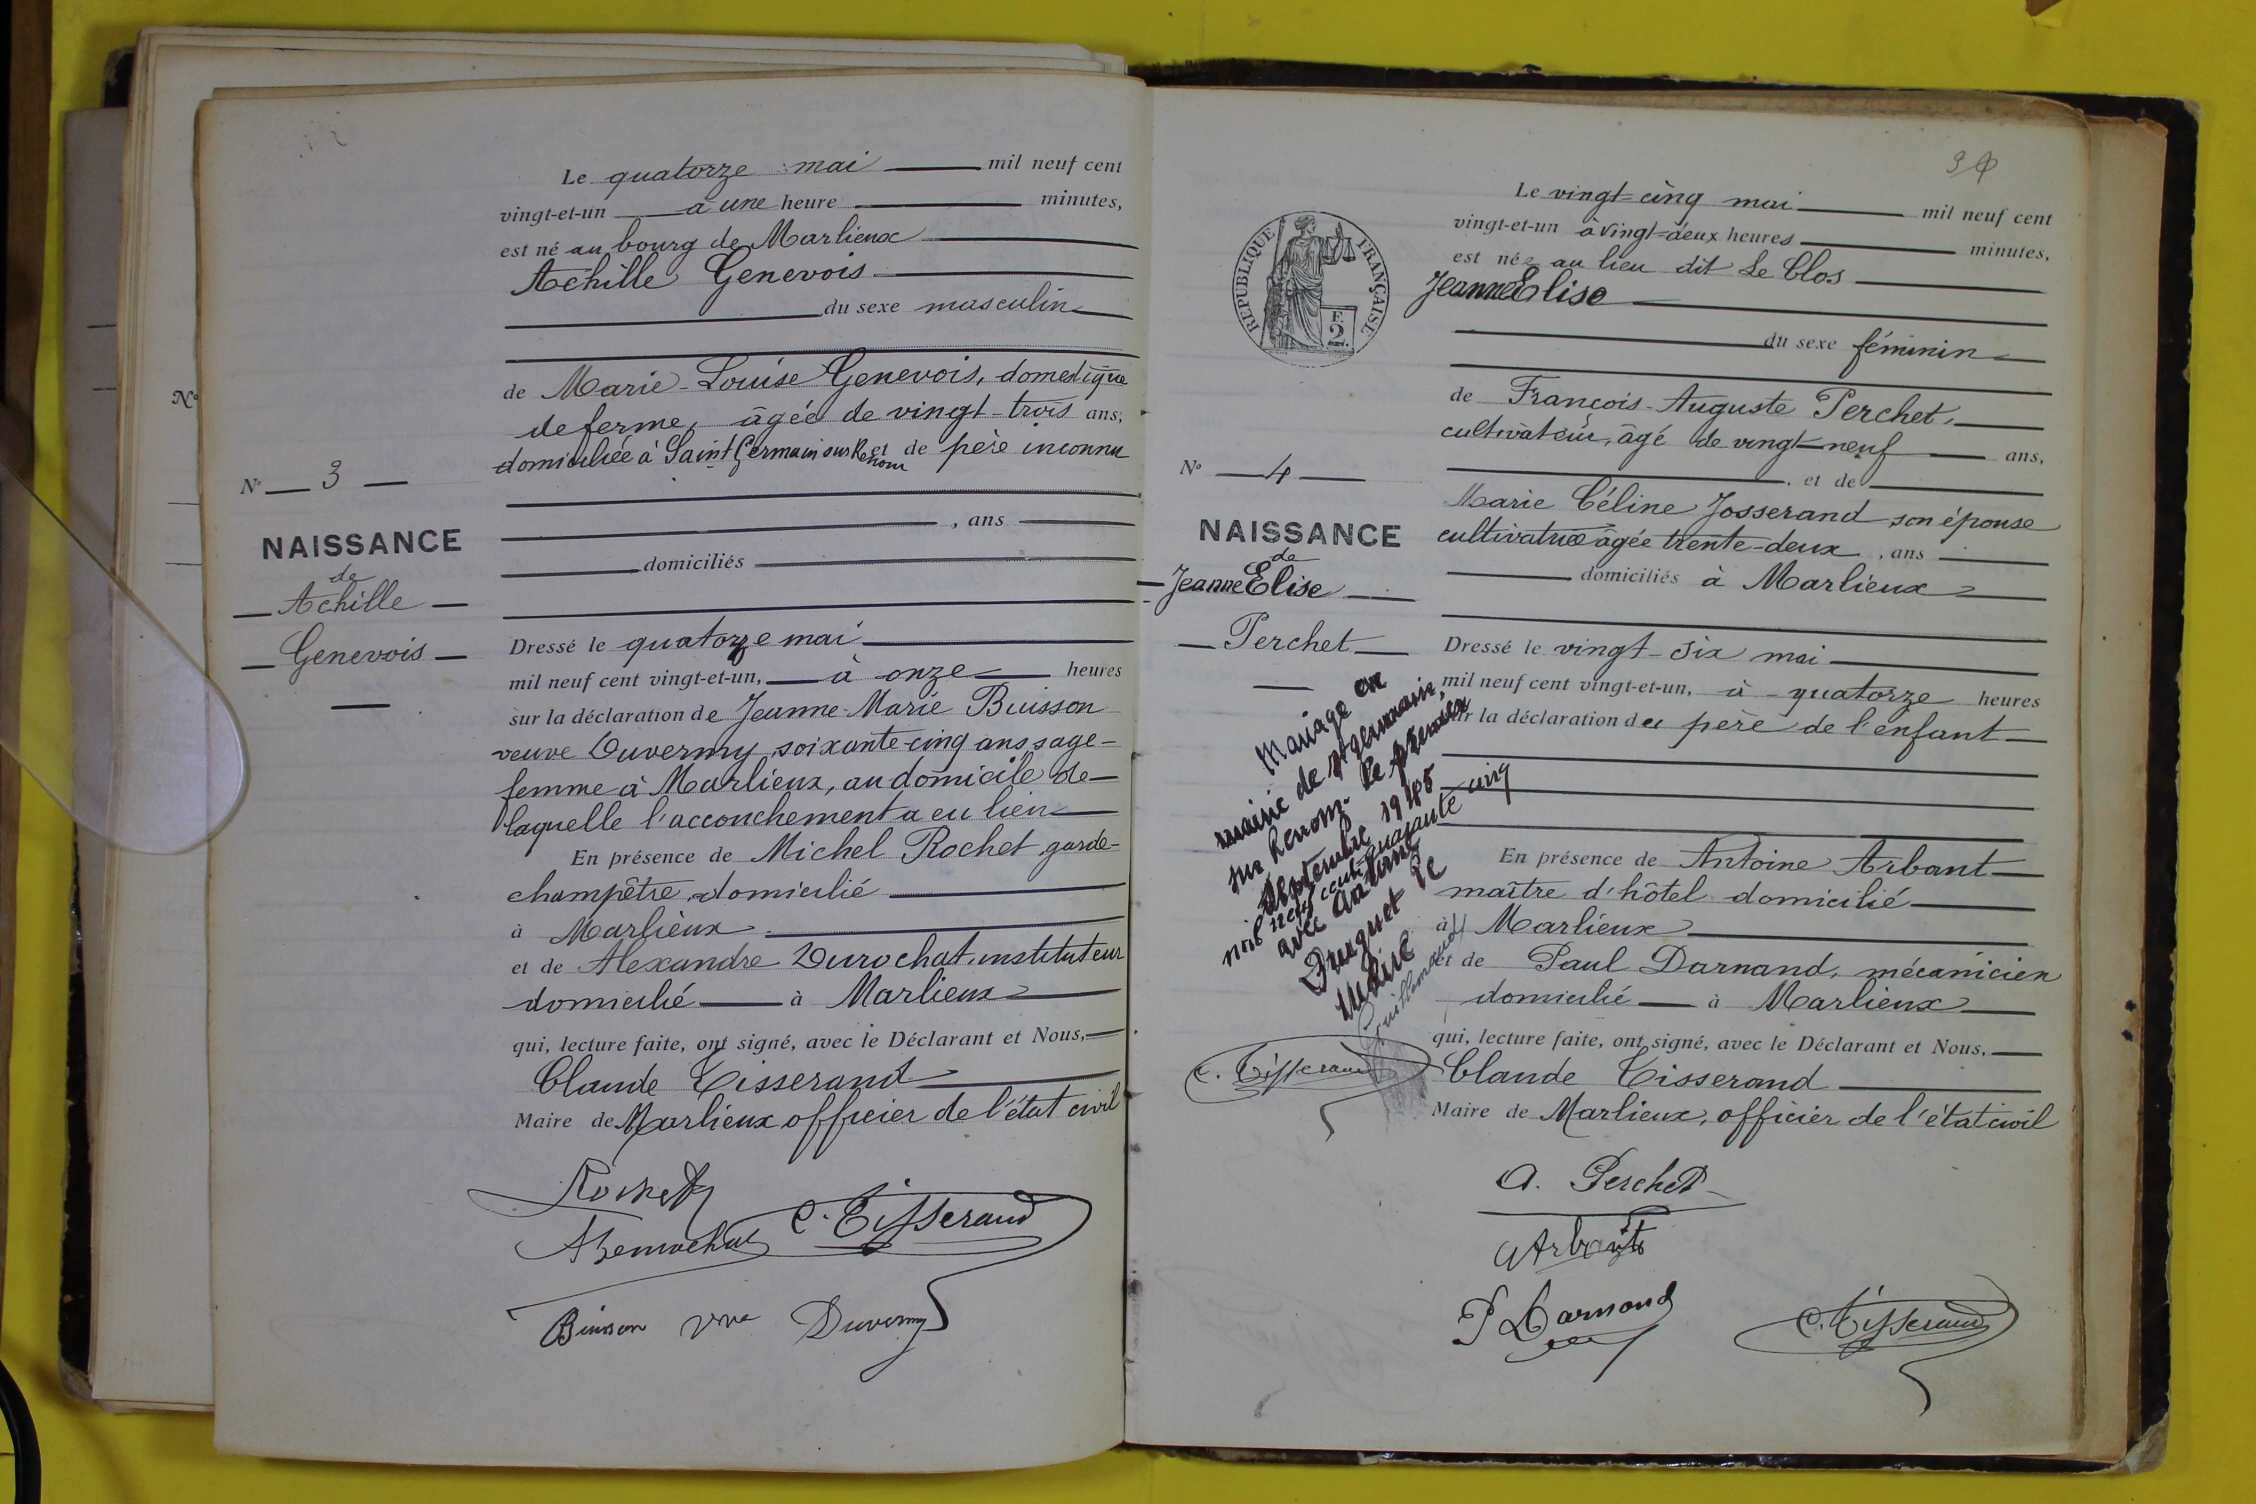 Le quatorze mai mil neuf cent
vingt-et-un à une heure minutes,
est né au bourg de Marlieux
Achille Genevois
du sexe masculin
de Marie-Louise Genevois, domestique
de ferme, âgée de vingt-trois ans,
domiciliée à Saint Germain sur Renom et de père inconnu
, ans
domiciliés
N° 3
NAISSANCE
de
Achille
Genevois
Dressé le quatorze mai
mil neuf cent vingt-et-un, à onze heures
sur la déclaration de Jeanne-Marie Buisson
veuve Duvermy, soixante-cinq ans sage-
femme à Marlieux, au domicile de
laquelle l'accouchement a eu lieu
En présence de Michel Rochet garde-
champêtre, domicilié
à Marlieux
et de Alexandre Durochat, instituteur
domicilié à Marlieux
qui, lecture faite, ont signé, avec le Déclarant et Nous,
Claude Tisserand
Maire de Marlieux officier de l'état civil
Rochet
C. Tisserand
Buisson vve Duvermy
N°
Le vingt-cinq mai mil neuf cent
vingt-et-un à vingt-deux heures minutes,
est née au lieu dit Le Clos
Jeanne Elise
du sexe féminin
de François-Auguste Perchet,
cultivateur, âgé de vingt-neuf ans,
, et de
Marie Céline Josserand son épouse
cultivatrice âgée trente-deux, ans
domiciliés à Marlieux
REPUBLIQUE FRANÇAISE
2
N° 4
NAISSANCE
de
Jeanne Elise
Perchet
Dressé le vingt-six mai
mil neuf cent vingt-et-un, à quatorze heures
sur la déclaration du père de l'enfant
En présence de Antoine Arbant
maître d'hôtel domicilié
à Marlieux
et de Paul Darnand, mécanicien
domicilié à Marlieux
qui, lecture faite, ont signé, avec le Déclarant et Nous,
Claude Tisserand
Maire de Marlieux, officier de l'état civil
Mariage en
mairie de St germain,
sur Renom. le premier
Septembre 1945
mil neuf cent quarante cinq
avec Antoine
Druguet Le
Maire
C. Tisserand
A. Perchet
Arbant
P Darnand
C. Tisserand